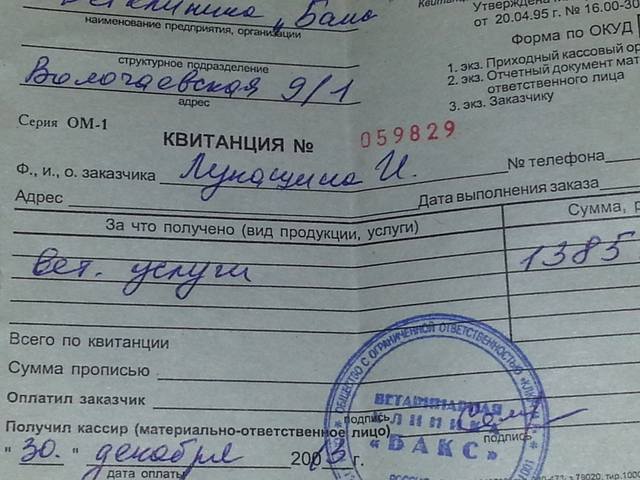 Ветклиника „Бакс
наименование предприятия, организации
структурное подразделение
Волочаевская 9/1
адрес
Утверждена
от 20.04.95 г. № 16.00-30
Форма по ОКУД
1. экз. Приходный кассовый ор
2. экз. Отчетный документ мат
ответственного лица
3. экз. Заказчику
Серия ОМ-1
КВИТАНЦИЯ № 059829
Ф., и., о. заказчика Лукашина И. № телефона
Адрес Дата выполнения заказа
За что получено (вид продукции, услуги) Сумма, р
Вет. услуги 1385
Всего по квитанции
Сумма прописью
Оплатил заказчик
подпись
Получил кассир (материально-ответственное лицо)
подпись
" 30. " декабря 2013 г.
дата оплаты
ОБЩЕСТВО С ОГРАНИЧЕННОЙ ОТВЕТСТВЕННОСТЬЮ
ВЕТЕРИНАРНАЯ
КЛИНИКА
«БАКС»